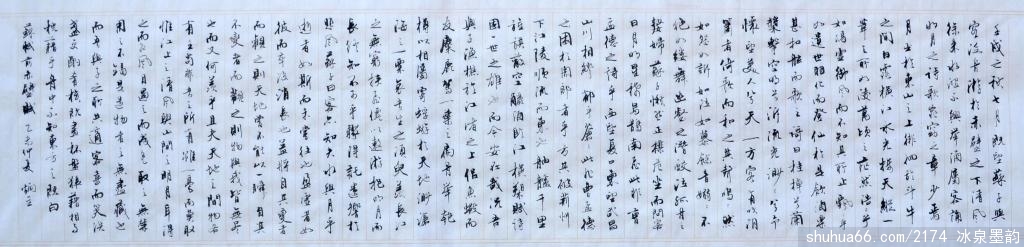 壬戌之秋七月既望蘇子與
客泛舟游於赤壁之下清風
徐來水波不興舉酒屬客誦
明月之詩歌窈窕之章少焉
月出於東山之上徘徊於斗牛
之間白露橫江水光接天縱一
葦之所如凌萬頃之茫然浩浩乎
如馮虛御風而不知其所止飄飄乎
如遺世獨立羽化而登仙於是飲酒樂
甚扣舷而歌之歌曰桂棹兮蘭
槳擊空明兮泝流光渺渺兮予
懷望美人兮天一方客有吹洞
簫者倚歌而和之其聲嗚嗚然
如怨如慕如泣如訴餘音嫋嫋不
絕如縷舞幽壑之潛蛟泣孤舟之
嫠婦蘇子愀然正襟危坐而問客
曰月明星稀烏鵲南飛此非曹
孟德之詩乎西望夏口東望武昌
山川相繆鬱乎蒼蒼此非孟德
之困於周郎者乎方其破荊州
下江陵順流而東也舳艫千里
旌旗蔽空釃酒臨江橫槊賦詩
固一世之雄也而今安在哉況吾
與子漁樵於江渚之上侶魚蝦而
友麋鹿駕一葉之扁舟舉匏
樽以相屬寄蜉蝣於天地渺滄
海之一粟哀吾生之須臾羨長江
之無窮挾飛仙以遨遊抱明月而
長終知不可乎驟得託遺響於
悲風蘇子曰客亦知夫水與月乎
逝者如斯而未嘗往也盈虛者如
彼而卒莫消長也蓋將自其變者
而觀之則天地曾不能以一瞬自其
不變者而觀之則物與我皆無盡
也而又何羨乎且夫天地之間物各
有主苟非吾之所有雖一毫而莫取
惟江上之清風與山間之明月耳得
之而為聲目遇之而成色取之無禁
用之不竭是造物者之無盡藏也
而吾與子之所共適客喜而笑洗
盞更酌肴核既盡杯盤狼藉相與
枕藉乎舟中不知東方之既白
蘇軾前赤壁賦
shuhua66.com/2174 冰泉墨韵